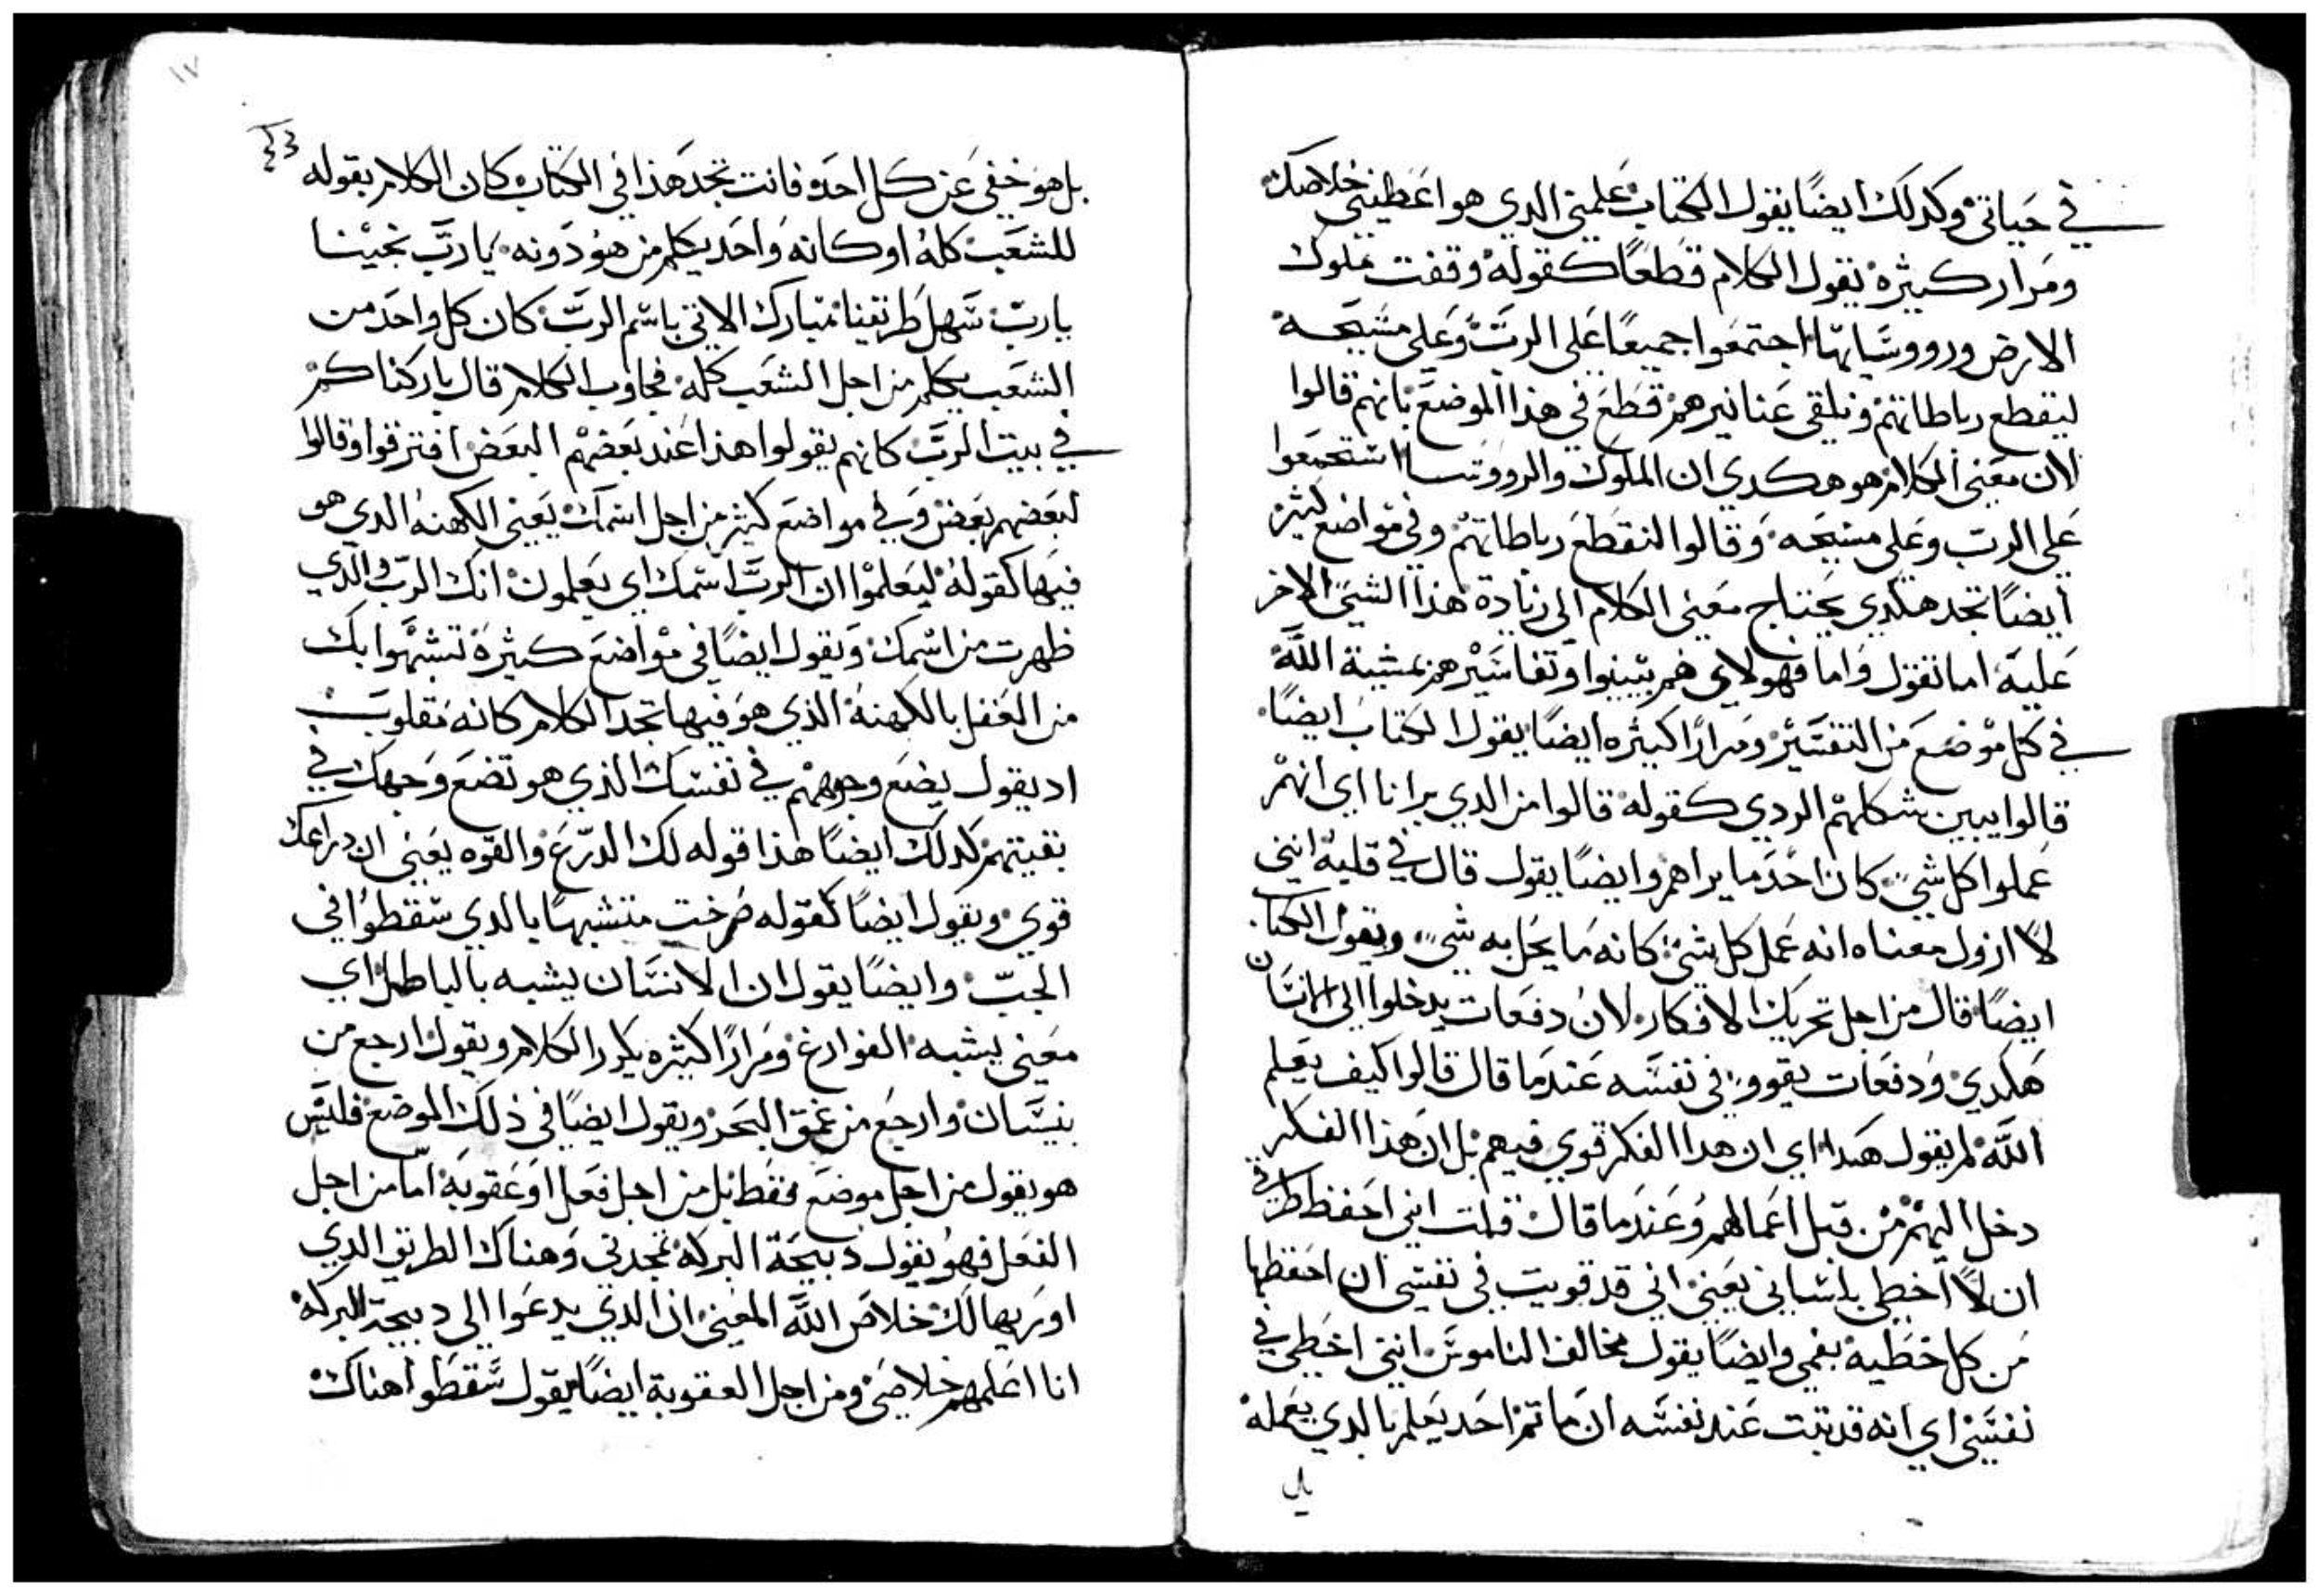 في حياتي وكدلك ايضًا يقول الكتاب علمني الدي هو اعطيني خلاصك
ومرار كبيره يقول الكلام قطعًا كقوله وقفت ملوك
الارض وروسايها اجتمعوا جميعًا على الرب وعلى مسيحه
ليقطع رباطاتهم ونلقي عنا نيرهم قطع في هذا الموضع بانهم قالوا
لان معنى الكلام هو هكدي ان الملوك والرووسا استجمعوا
على الرب وعلى مسيحه وقالوا لنقطع رباطاتهم وفي مواضع كثير
ايضًا تجد هكدي يحتاج معنى الكلام الى زيادة هذا الشي الاخر
عليه اما نقول واما فهولاي هم بينوا وتفاسيرهم بمشية الله
في كل موضع من التفسير ومرارًا كبيره ايضًا يقول الكتاب ايضًا
قالوا يبين شكلهم الردي كقوله قالوا من الدي يرانا اي انهم
عملوا كل شي كان احد ما يراهم وايضًا يقول قال في قلبه انني
لا ازول معناه انه عمل كل شي كانه ما يحل به شي ويقول الكتاب
ايضًا قال من اجل تحريك الافكار لان دفعات يدخلوا الى الانسان
هكدي ودفعات يقووا في نفسه عندما قال قالوا كيف يعلم
الله لم يقول هكدا اي ان هدا الفكر قوي فيهم بل ان هذا الفكر
دخل اليهم من قبل اعمالهم وعندما قال قلت اني احفظ طرقي
ان لا اخطي بلساني يعني اني قد قويت في نفسي ان احفظها
من كل خطيه بفمي وايضًا يقول مخالف الناموس انني اخطي في
نفسي اي انه قد تبت عند نفسه ان ما تم احد يعلم بالدي يعمله
بل
١٧
بل هو خفي عن كل احد فانت تجد هذا في الكتاب كان الكلام بقوله
للشعب كله او كانه واحد يكلم من هو دونه يا رب نجينا
يا رب سهل طريقنا مبارك الاتي باسم الرب كان كل واحد من
الشعب يكلم من اجل الشعب كله فجاوب الكلام قال باركناكم
في بيت الرب كانهم يقولوا هذا عند بعضهم البعض افترقوا وقالوا
لبعضهم بعض وفي مواضع كثير من اجل اسمك يعني الكهنه الدي هو
فيها كقوله ليعلموا ان الرب اسمك اي يعلمون انك الرب والدي
ظهرت من اسمك ويقول ايضًا في مواضع كثيره تشبهوا بك
من الغفل بالكهنه الذي هو فيها تجد الكلام كانه مقلوب
اد يقول يضع وجوههم في نفسك الذي هو تضع وجهك في
بقيتهم كدلك ايضًا هذا قوله لك الدرع والقوه يعني ان دراعك
قوي ويقول ايضًا كقوله صرخت متشبهًا بالدي سقطوا في
الجب وايضًا يقول ان الانسان يشبه بالباطل اي
معنى يشبه الفوارغ ومرارًا كبيره يكرر الكلام ويقول ارجع من
بيسان وارجع من عمق البحر ويقول ايضًا في ذلك الموضع فليس
هو يقول من اجل موضع فقط بل من اجل فعل او عقوبه اما من اجل
الفعل فهو يقول دبيحة البركه تمجدني وهناك الطريق الدي
اوريها لك خلاص الله المعنى ان الدي يدعوا الى دبيحة البركه
انا اعلمهم خلاصي ومن اجل العقوبة ايضًا يقول سقطوا هناك